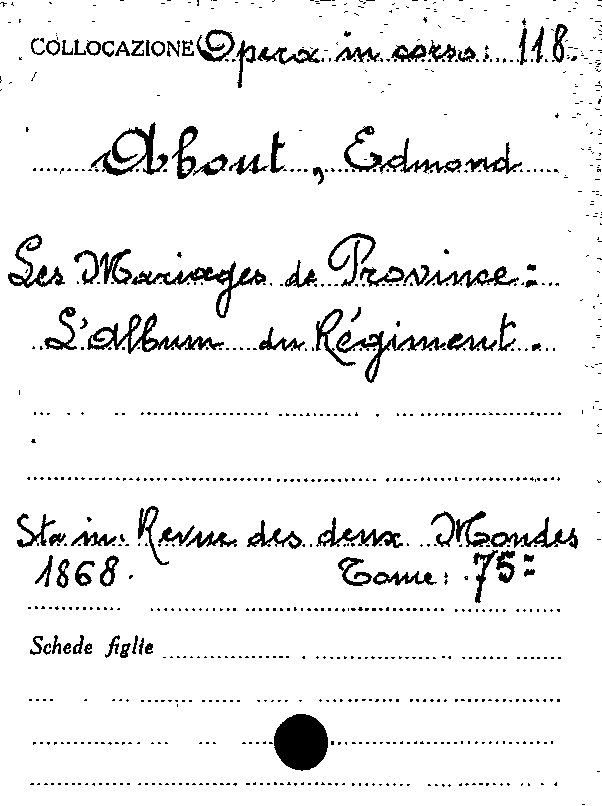 COLLOCAZIONE Opera in corso: 118.
About, Edmond
Les Mariages de Province:
L'Album du Régiment.
Sta in: Revue des deux Mondes
1868. Tome: 75:
Schede figlie